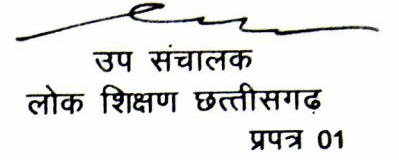 उप संचालक
लोक शिक्षण छत्तीसगढ़
प्रपत्र 01